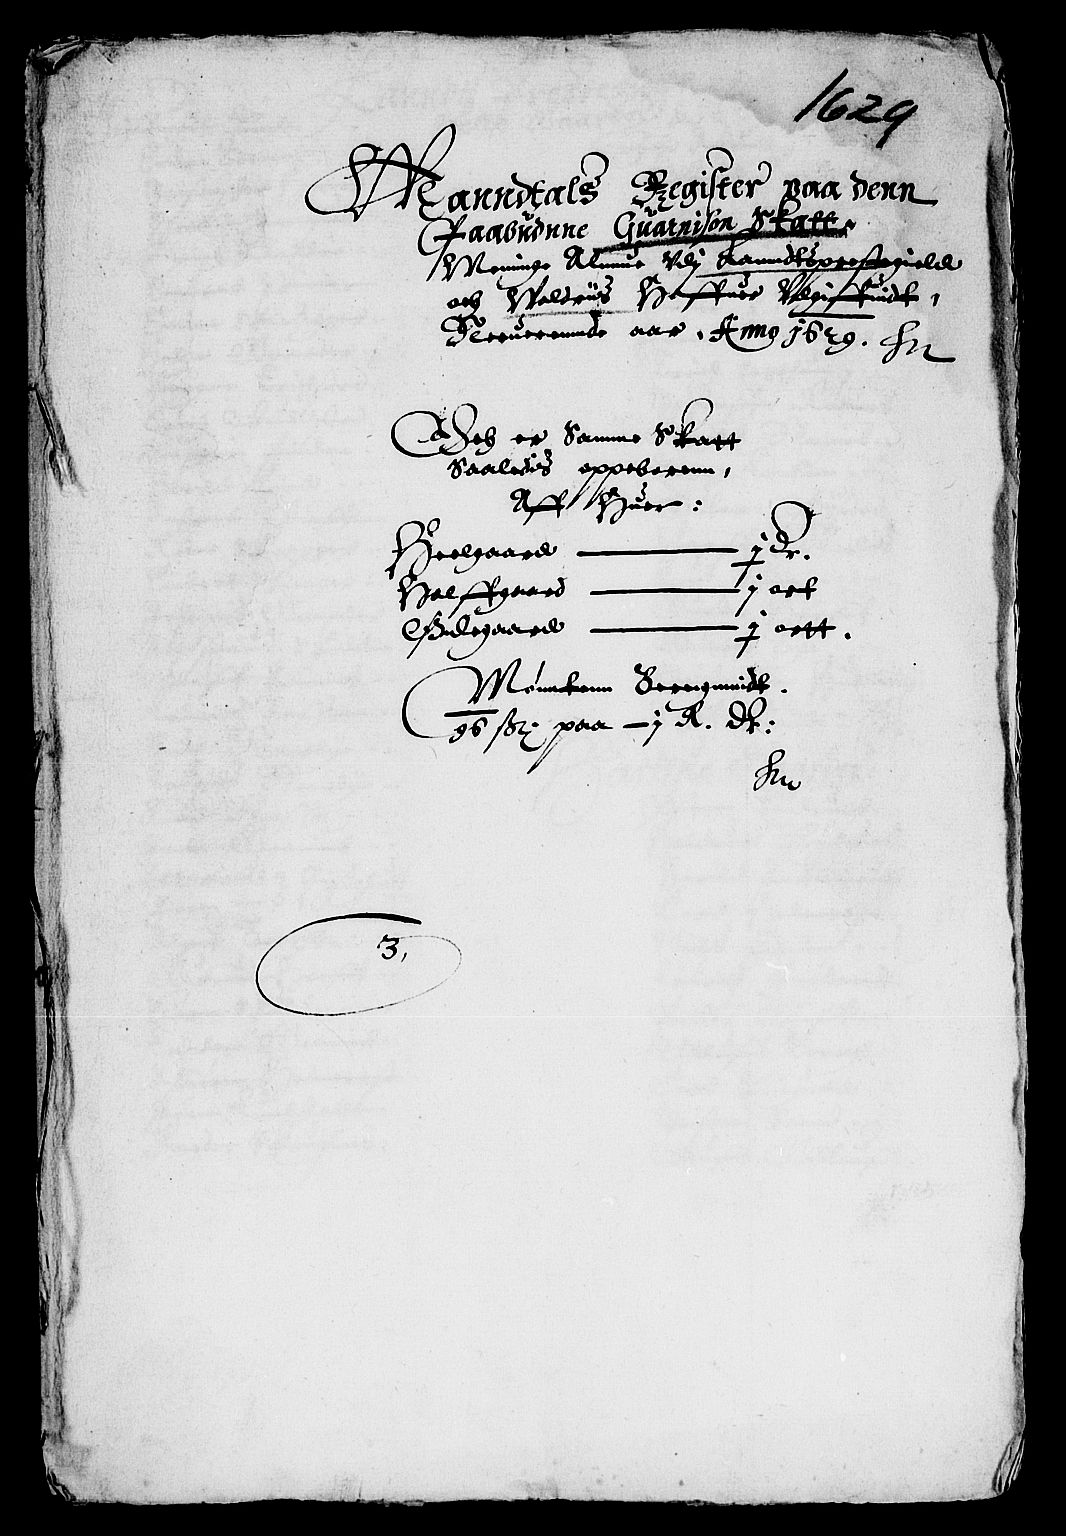 1629
Manndtals Register paa denn
Paabudne Guarnison Skatt
Menige Almue Udj Lanndtsprestegield
och Waldriis Haffuer Udgiffuidt,
Neruerennde aar. Anno 1629.
Och er Samme Skatt
Saaledis oppeboren,
Aff Huer:
Heelgaard — j dr.
Halffgaard — j ort
Ødegaard — j ortt.
Mønten Beregnnidt.
96 ß paa — j R. dr:
3,